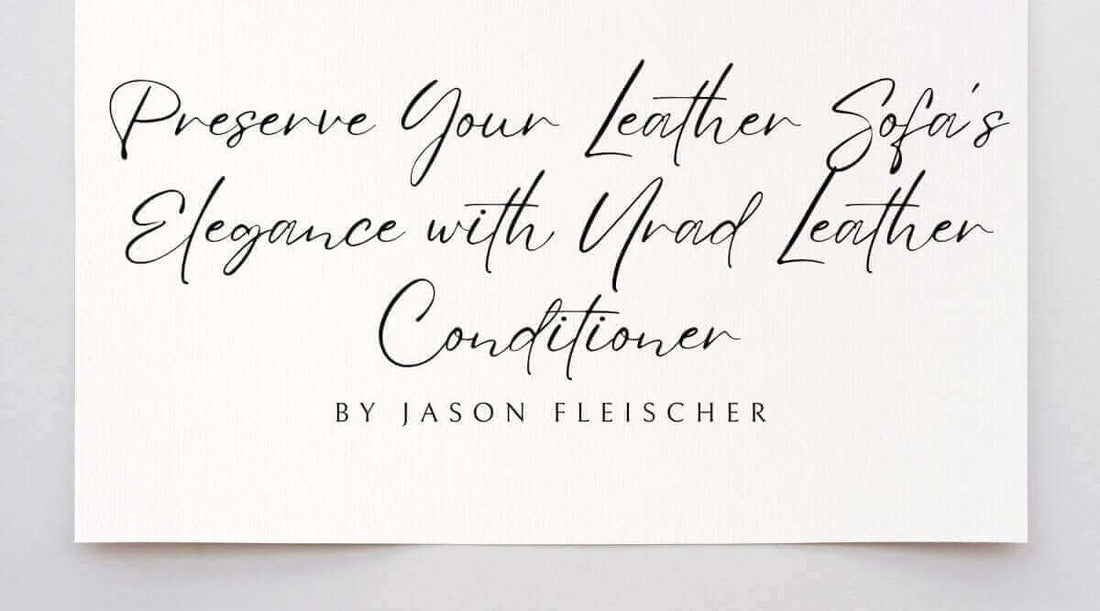 Preserve Your Leather Sofa's
Elegance with Urad Leather
Conditioner
BY JASON FLEISCHER